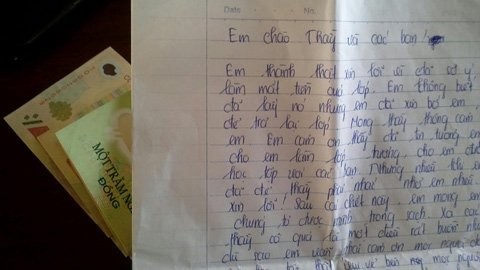 Date No.
Em chào Thầy và các bạn!
Em thành thật xin lỗi vì đã sơ ý
làm mất tiền quỹ lớp. Em không biết
đã lấy nó nhưng em đã xin bố em
để trả lại lớp. Mong thầy thông cảm
em. Em cảm ơn thầy đã tin tưởng em
cho em làm lớp tưởng cho em
học tập với các bạn. Nhưng nhiều khi em
đã để thầy phải nhắc nhở em nhiều
xin lỗi! Sau cái chết này em mong em
chứng tỏ được mình trong sạch. Xa các
thầy cô quả là một điều rất buồn
dù sao em vẫn cảm ơn mọi người
MỘT TRĂM
ĐỒNG